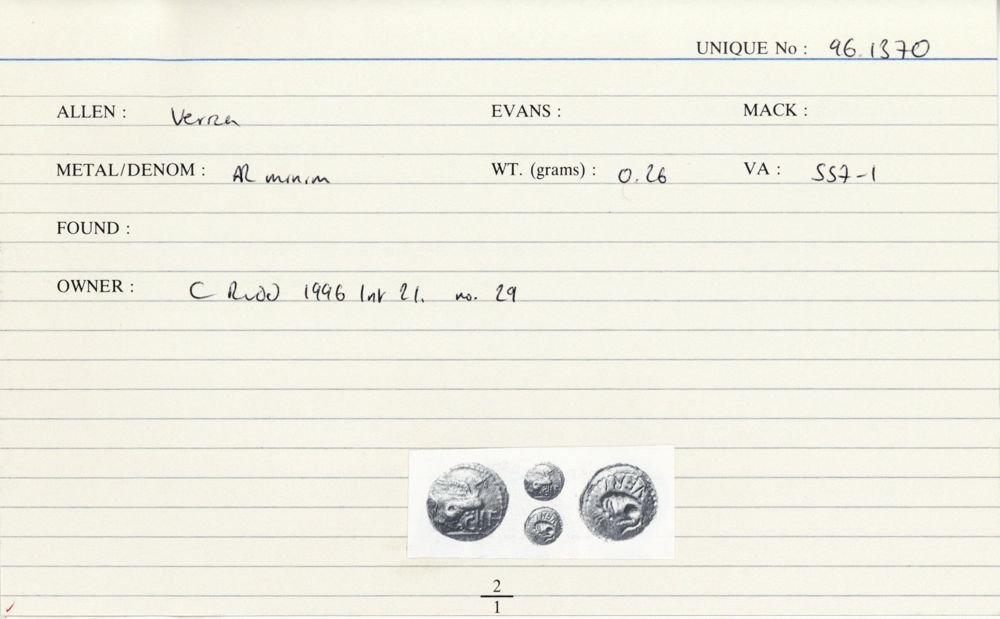 UNIQUE No : 96.1370
ALLEN : Verica EVANS : MACK :
METAL/DENOM : AR minim WT. (grams) : 0.26 VA : 557-1
FOUND :
OWNER : C Rudd 1996 list 21. no. 29
2
1